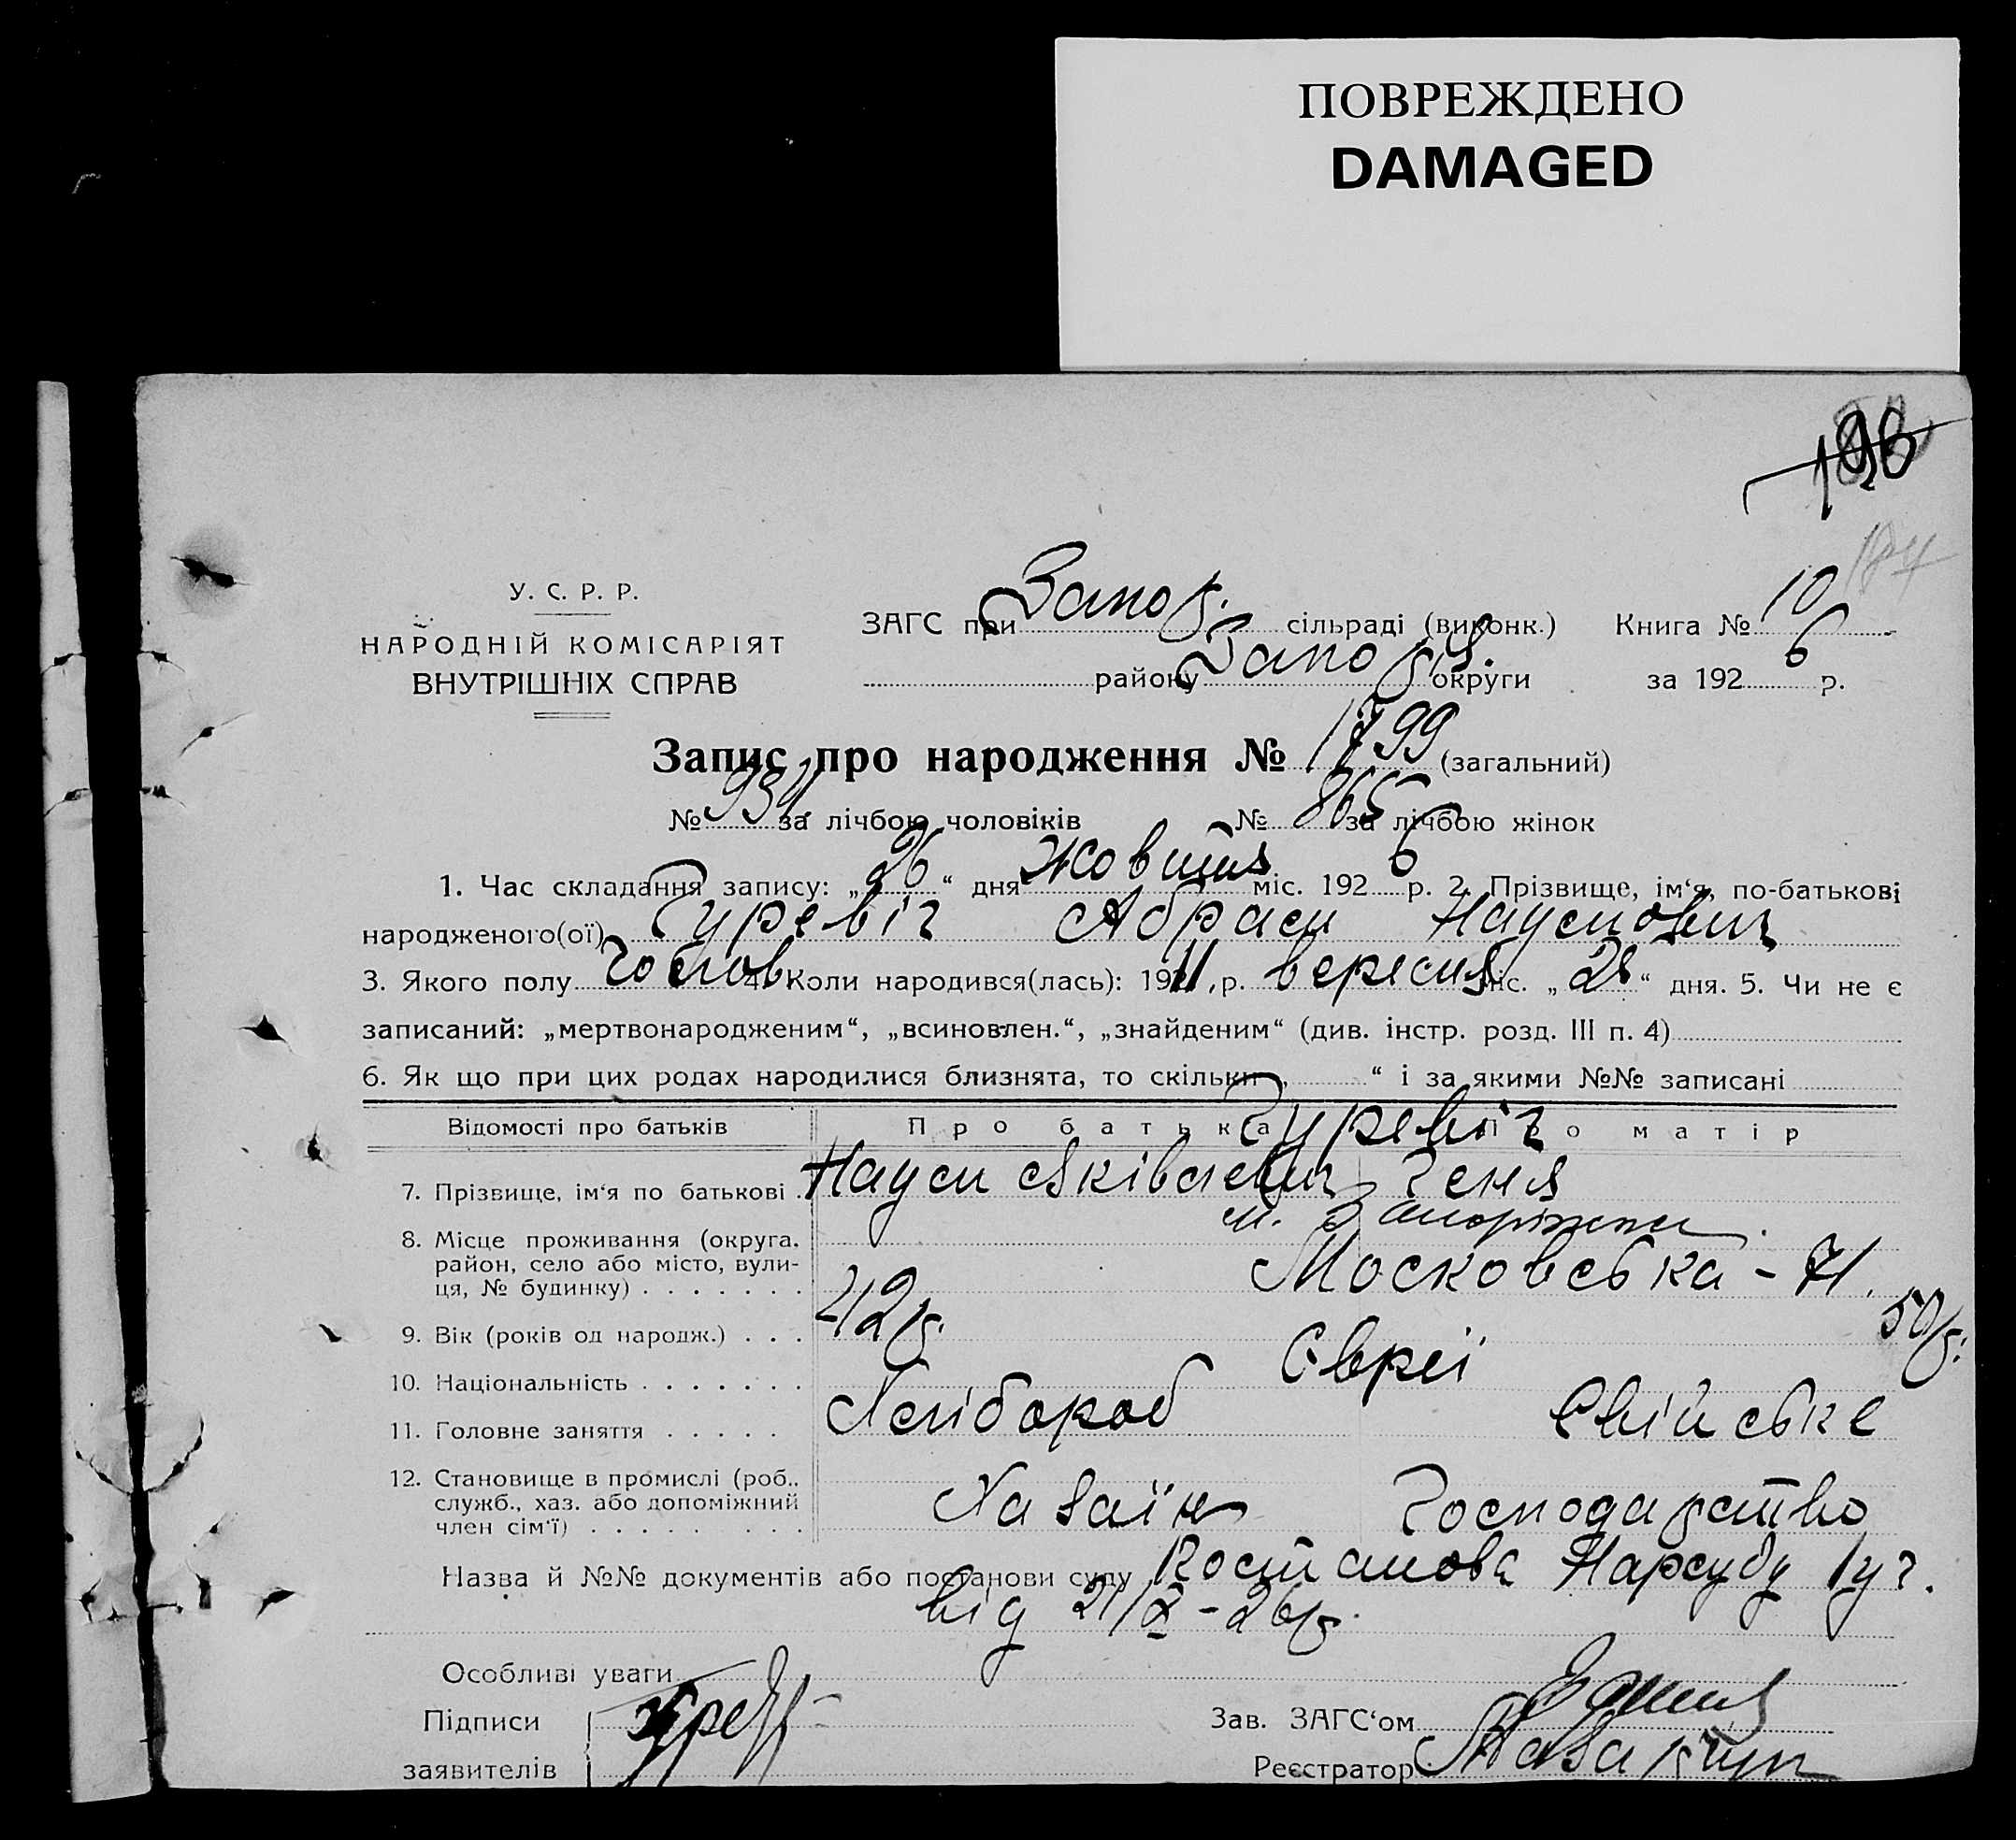 ПОВРЕЖДЕНО
DAMAGED
196
184
У. С. Р. Р.
НАРОДНІЙ КОМІСАРІЯТ
ВНУТРІШНІХ СПРАВ
ЗАГС при Запор. сільраді (виконк.) Книга № 10
району Запор округи за 1926 р.
Запис про народження № 1799 (загальний)
№ 934 за лічбою чоловіків № 865 за лічбою жінок
1. Час складання запису: „26“ дня Жовтня міс. 1926 р. 2. Прізвище, ім‘я, по-батькові
народженого(ої) Гуревіч Абрам Наумович
3. Якого полу чолов 4. Коли народився(лась): 1911 р. вересня міс. „28“ дня. 5. Чи не є
записаний: „мертвонародженим“, „всиновлен.“, „знайденим“ (див. інстр. розд. III п. 4)
6. Як що при цих родах народилися близнята, то скільки „ “ і за якими №№ записані
Відомості про батьків Про батька Про матір
Гуревіч
7. Прізвище, ім‘я по батькові Наум Яківлевич Геня
м. Запоріжжя
8. Місце проживання (округа, район, село або місто, вули-
ця, № будинку) Московська - 71.
9. Вік (років од народж.) 42 р. 50 р.
10. Національність Євреї
11. Головне заняття Хлібороб Свійське
12. Становище в промислі (роб.,
служб., хаз. або допоміжний
член сім‘ї) Хазаїн Господарство
Назва й №№ документів або постанови суду Постанова Нарсуду 1 уч.
від 21/X - 26 р.
Особливі уваги
Підписи Зав. ЗАГС‘ом
заявителів Реєстратор